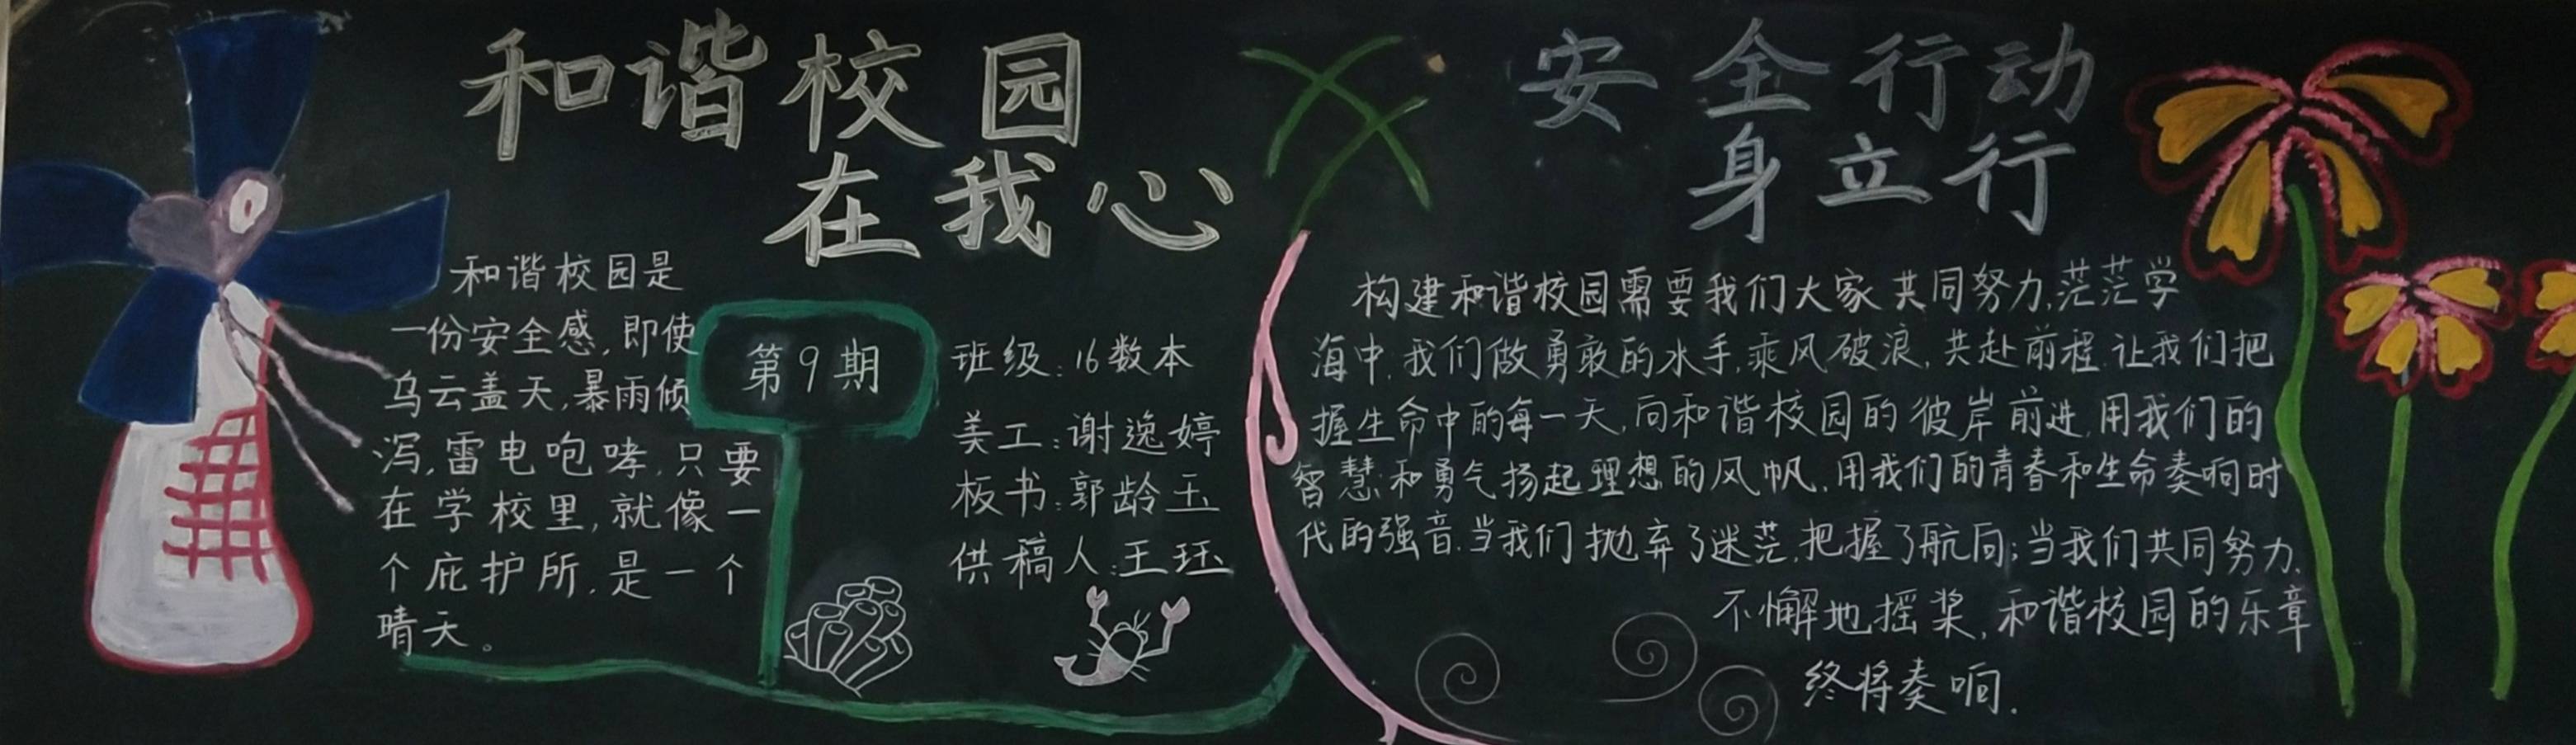 和谐校园
在我心
和谐校园是
一份安全感,即使
乌云盖天,暴雨倾
泻,雷电咆哮,只要
在学校里,就像一
个庇护所,是一个
晴天。
第9期
班级:16数本
美工:谢逸婷
板书:郭龄玉
供稿人:王珏
安全行动
身立行
构建和谐校园需要我们大家共同努力,茫茫学
海中,我们做勇敢的水手,乘风破浪,共赴前程.让我们把
握生命中的每一天,向和谐校园的彼岸前进,用我们的
智慧和勇气扬起理想的风帆,用我们的青春和生命奏响时
代的强音.当我们抛弃了迷茫,把握了航向;当我们共同努力,
不懈地摇桨,和谐校园的乐章
终将奏响.